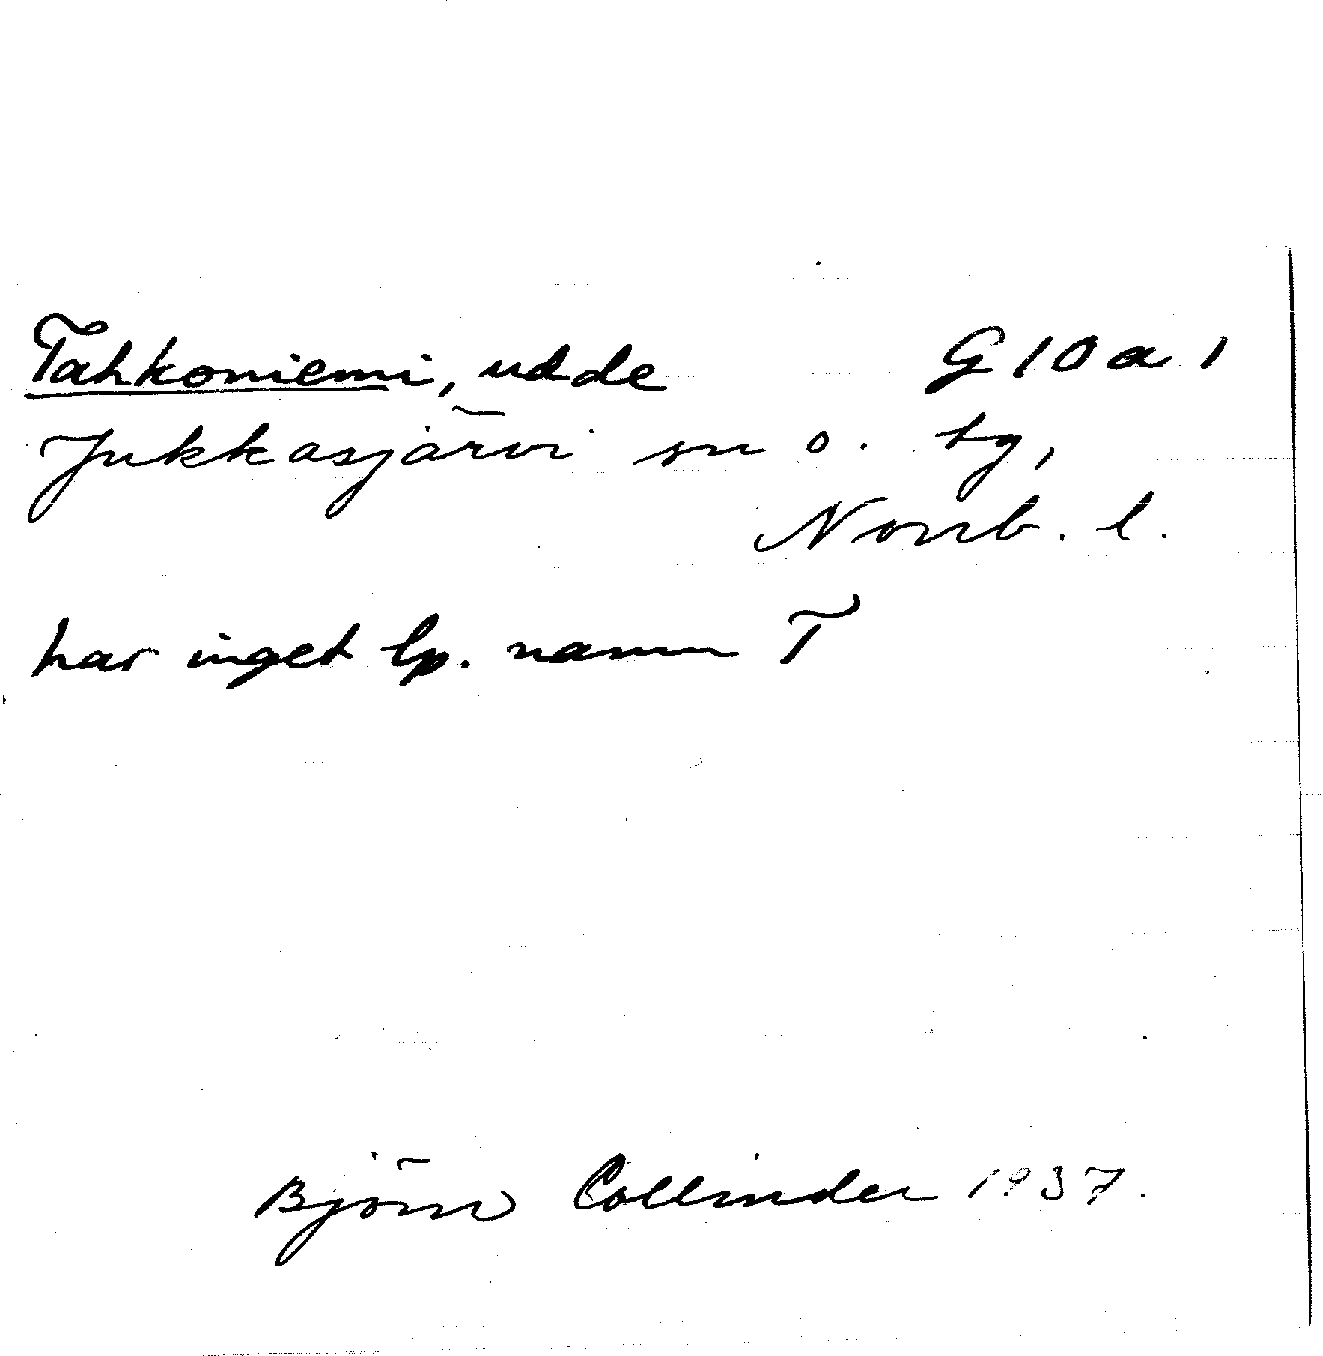 Tahkoniemi, udde G 10 a 1
Jukkasjärvi sn o. tg,
Norrb. l.
har inget lp. namn T
Björn Collinder 1937.